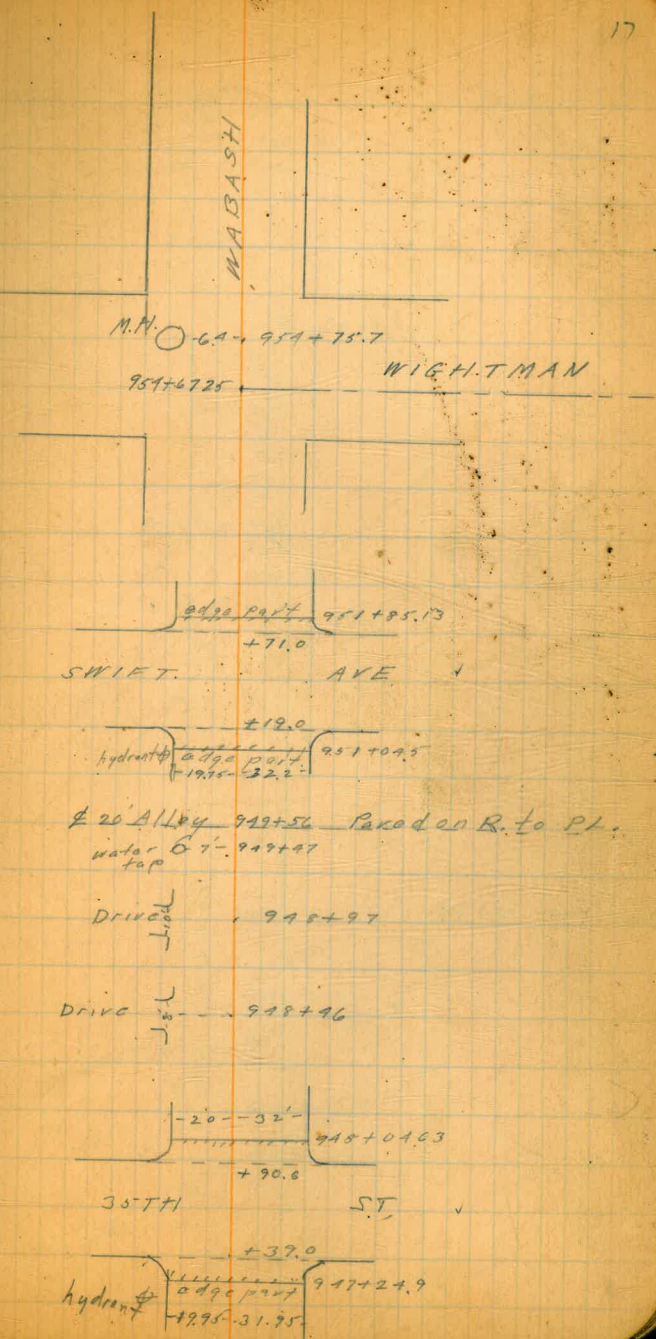 17
WABASH
M.H. -6.4- 954+75.7
WIGHTMAN
954+67.25
edge part 951+85.13
+71.0
SWIFT. AVE
+19.0
hydrant edge part 951+04.5
-19.75- -32.2-
℄ 20' Alley 949+56 Paved on R. to PL.
water 7'- 949+47
tap
Drive 948+97
Drive 948+46
-20- -32'-
948+04.63
+90.6
35TH ST.
+39.0
hydrant edge part 947+24.9
-19.95- 31.95-